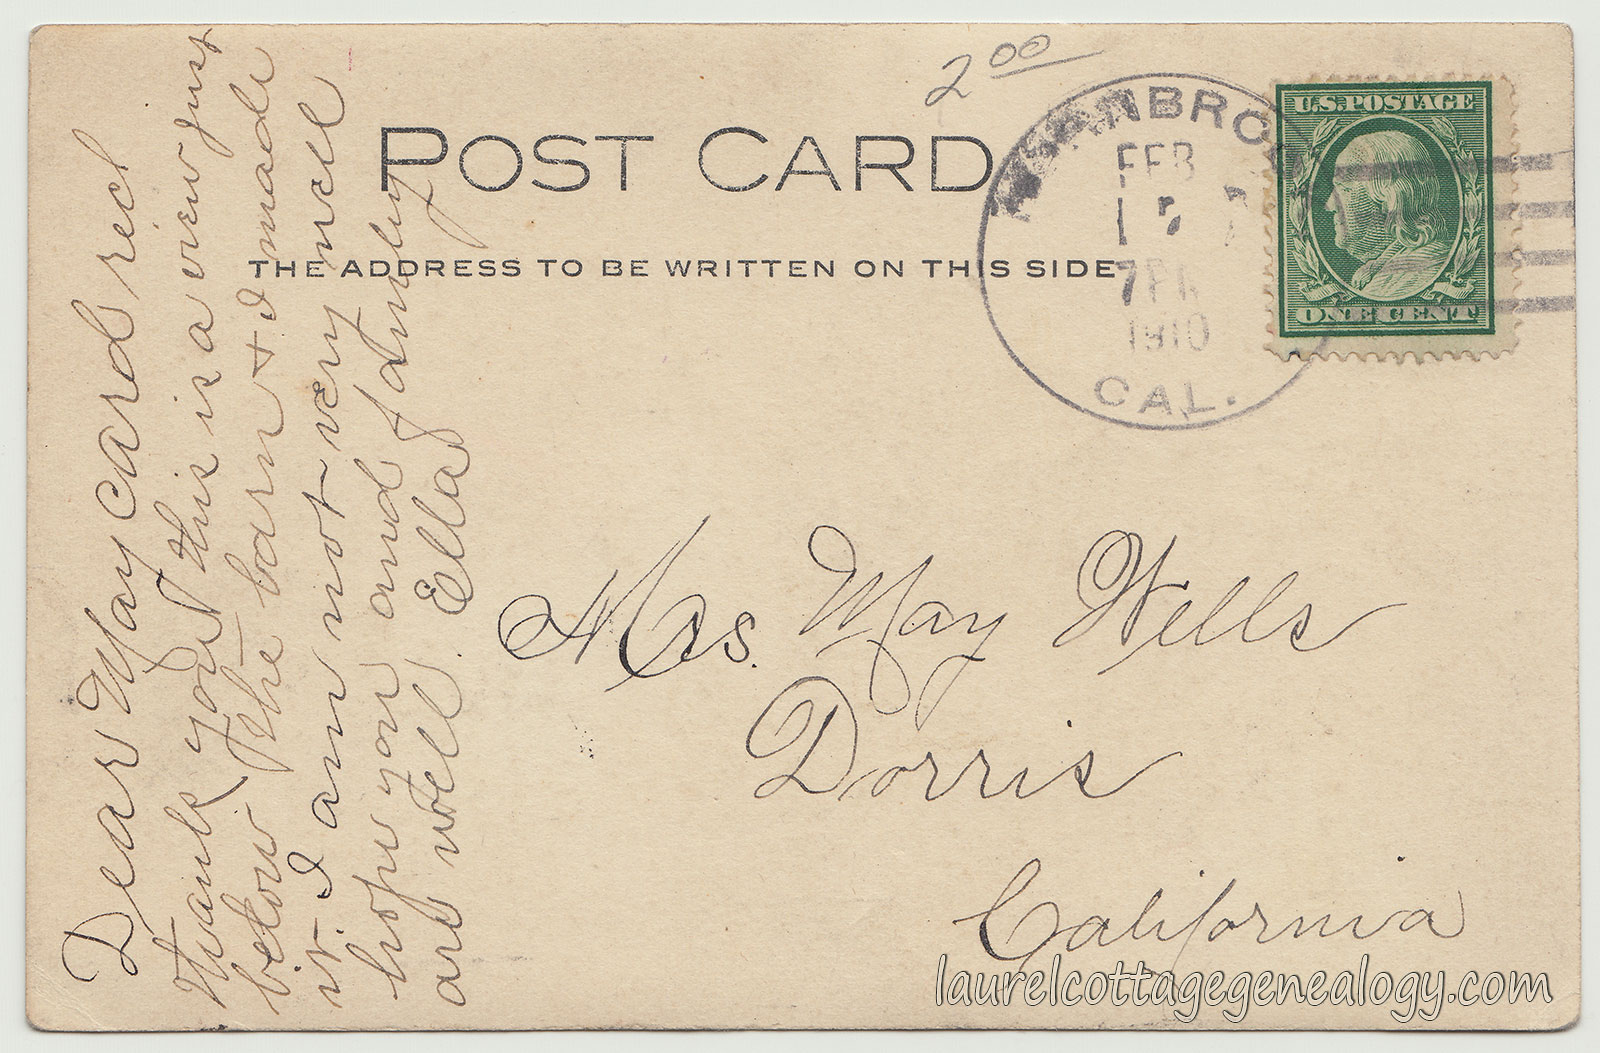 2 00
POST CARD
THE ADDRESS TO BE WRITTEN ON THIS SIDE
FEB
7 PM
1910
CAL.
U.S. POSTAGE
ONE CENT
Dear May card rec'd
thank you this is a view just
below the barn & I made
it. I am not very well
hope you and family
are well. Ella
Mrs. May Wells
Dorris
California
laurelcottagegenealogy.com